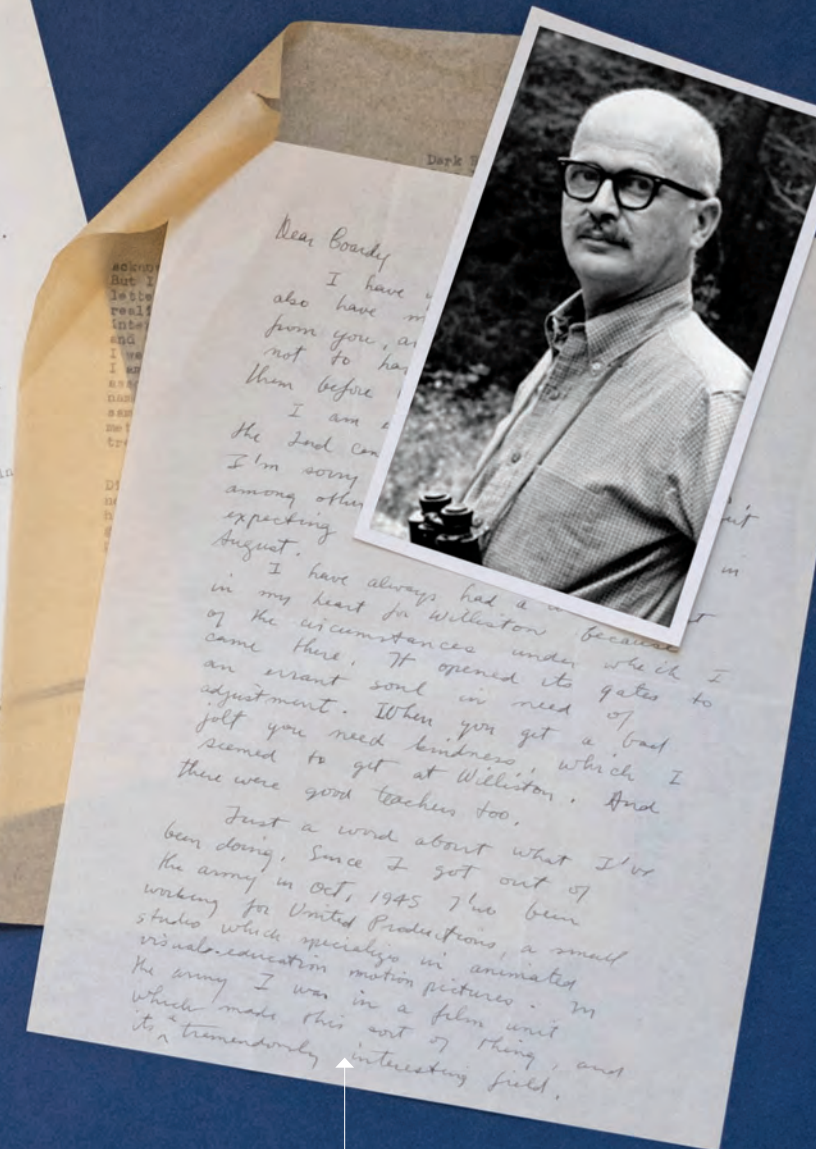 Dark
ackno
But I
lette
reali
inte
and
I we
I am
ass
nam
sam
met
tre
Di
ne
h
in
Dear Boardy
I have
also have m
from you, a
not to ha
them before
I am
the 2nd con
I'm sorry
among other
expecting
August.
ut
in
t
I have always had a
in my heart for Williston because
of the circumstances under which I
came there. It opened its gates to
an errant soul in need of
adjustment. When you get a bad
jolt you need kindness, which I
seemed to get at Williston. And
there were good teachers too.
Just a word about what I've
been doing. Since I got out of
the army in Oct, 1945 I've been
working for United Productions, a small
studio which specializes in animated
visual-education motion pictures. In
the army I was in a film unit
which made this sort of thing, and
its a tremendously interesting field.